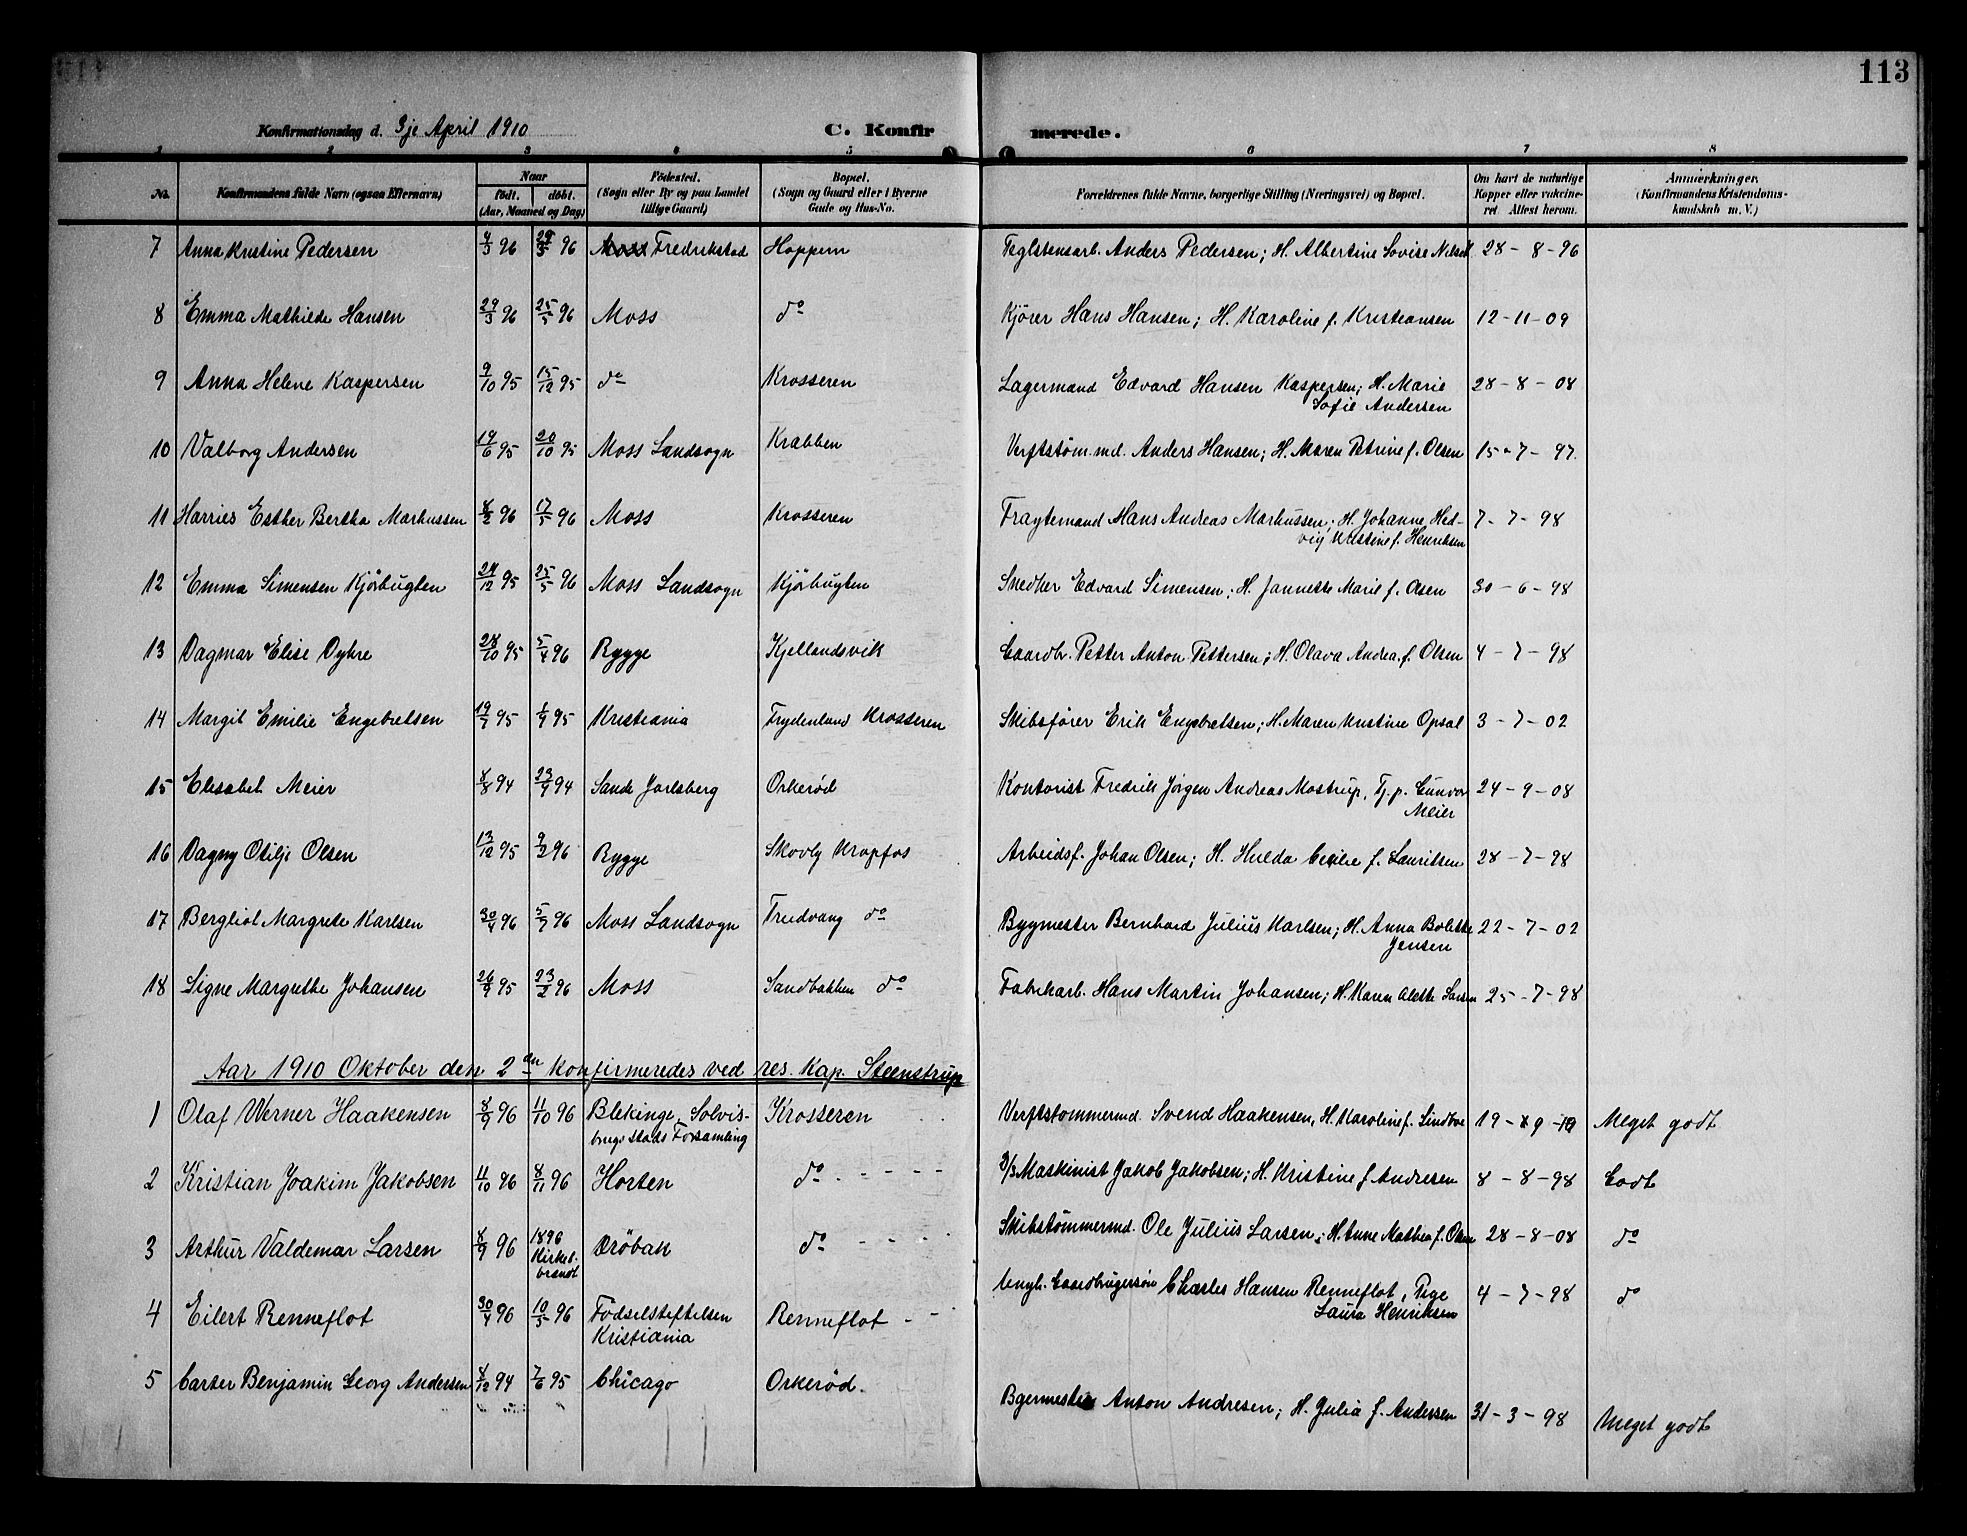 113
Konfirmationsdag d. 3je April 1910 C. Konfirmerede.
1 2 3 4 5 6 7 8
No. Konfirmandens fulde Navn (ogsaa Efternavn) Naar født. døbt. (Aar, Maaned og Dag) Fødested. (Sogn eller By og paa Landet tillige Gaard) Bopæl. (Sogn og Gaard eller i Byerne Gade og Hus-No. Forældrenes fulde Navne, borgerlige Stilling (Næringsvei) og Bopæl. Om havt de naturlige Kopper eller vaccineret. Attest herom. Anmærkninger. (Konfirmandens Kristendomskundskab m. V.)
7 Anna Kristine Pedersen 4/3 96 29/5 96 Moss Fredrikstad Hoppern Teglstensarb. Anders Pedersen; H. Albertine Lovise Nilsen 28-8-96
8 Emma Mathilde Hansen 29/3 96 25/5 96 Moss do Kjører Hans Hansen; H. Karoline f. Kristiansen 12-11-09
9 Anna Helene Kaspersen 9/10 95 15/12 95 do Krosseren Lagermand Edvard Hansen Kaspersen; H. Marie 28-8-08
Sofie Andersen
10 Valborg Andersen 19/6 95 20/10 95 Moss Landsogn Krabben Verftstøm.md. Anders Hansen; H. Maren Petrine f. Olsen 15-7-97.
11 Harries Esther Bertha Markussen 8/2 96 17/5 96 Moss Krosseren Fragtemand Hans Andreas Markussen; H. Johanne Hed- 7-7-98
vig Kristine f. Henriksen
12 Emma Simensen Kjøbugten 24/12 95 25/5 96 Moss Landsogn Kjøbugten Snedker Edvard Simensen; H. Jannette Marie f. Olsen 30-6-98
13 Dagmar Elise Dyhre 28/10 95 5/4 96 Rygge Kjellandsvik Gaardbr. Petter Anton Pettersen; H. Olava Andrea f. Olsen 4-7-98
14 Margit Emilie Engebretsen 19/7 95 1/9 95 Kristiania Frydenlund Krosseren Skibsfører Erik Engebretsen; H. Maren Kristine Opsal 3-7-02
15 Elisabet Meier 8/8 94 23/9 94 Sande Jarlsberg Orkerød Kontorist Fredrik Jørgen Andreas Mostrup, Tj.p. Gunvor 24-9-08
Meier
16 Dagny Otilje Olsen 13/12 95 9/2 96 Rygge Skovly Krapfos Arbeidsf. Johan Olsen; H. Hulda Cecilie f. Lauritsen 28-7-98
17 Bergliot Margrete Karlsen 30/4 96 5/7 96 Moss Landsogn Trudvang do Bygmester Bernhard Julius Karlsen; H. Anna Bolette 22-7-02
Jensen
18 Signe Margrethe Johansen 26/9 95 23/2 96 Moss Sandbakken do Fabrikarb. Hans Martin Johansen; H. Karen Alette Larsen 25-7-98
Aar 1910 Oktober den 2den konfirmeredes ved res. Kap. Steenstrup
1 Olaf Werner Haakensen 8/9 96 11/10 96 Blekinge, Solvis- Krosseren Verftstømmermd. Svend Haakensen, H. Karoline f. Lindboe 19-9-10 Meget godt
brugs stads Forsamling
2 Kristian Joakim Jakobsen 11/10 96 8/11 96 Horten do - - - - D/S Maskinist Jakob Jakobsen; H. Kristine f. Andresen 8-8-98 Godt
3 Arthur Valdemar Larsen 8/9 96 1896 Drøbak do - - - - Skibstømmermd. Ole Julius Larsen; H. Anne Mathea f. Olsen 28-8-08 do
Kirkeb. brandt
4 Eilert Renneflot 30/4 96 10/5 96 Fødselsteftelsen Renneflot - - Ungk. Gaardbrugersøn Charles Hansen Renneflot, Pige 4-7-98 do
Kristiania Laura Henriksen
5 Carter Benjamin Georg Andersen 8/12 94 7/6 95 Chicago Orkerød. Bgermester Anton Andresen; H. Julia f. Andersen 31-3-98 Meget godt